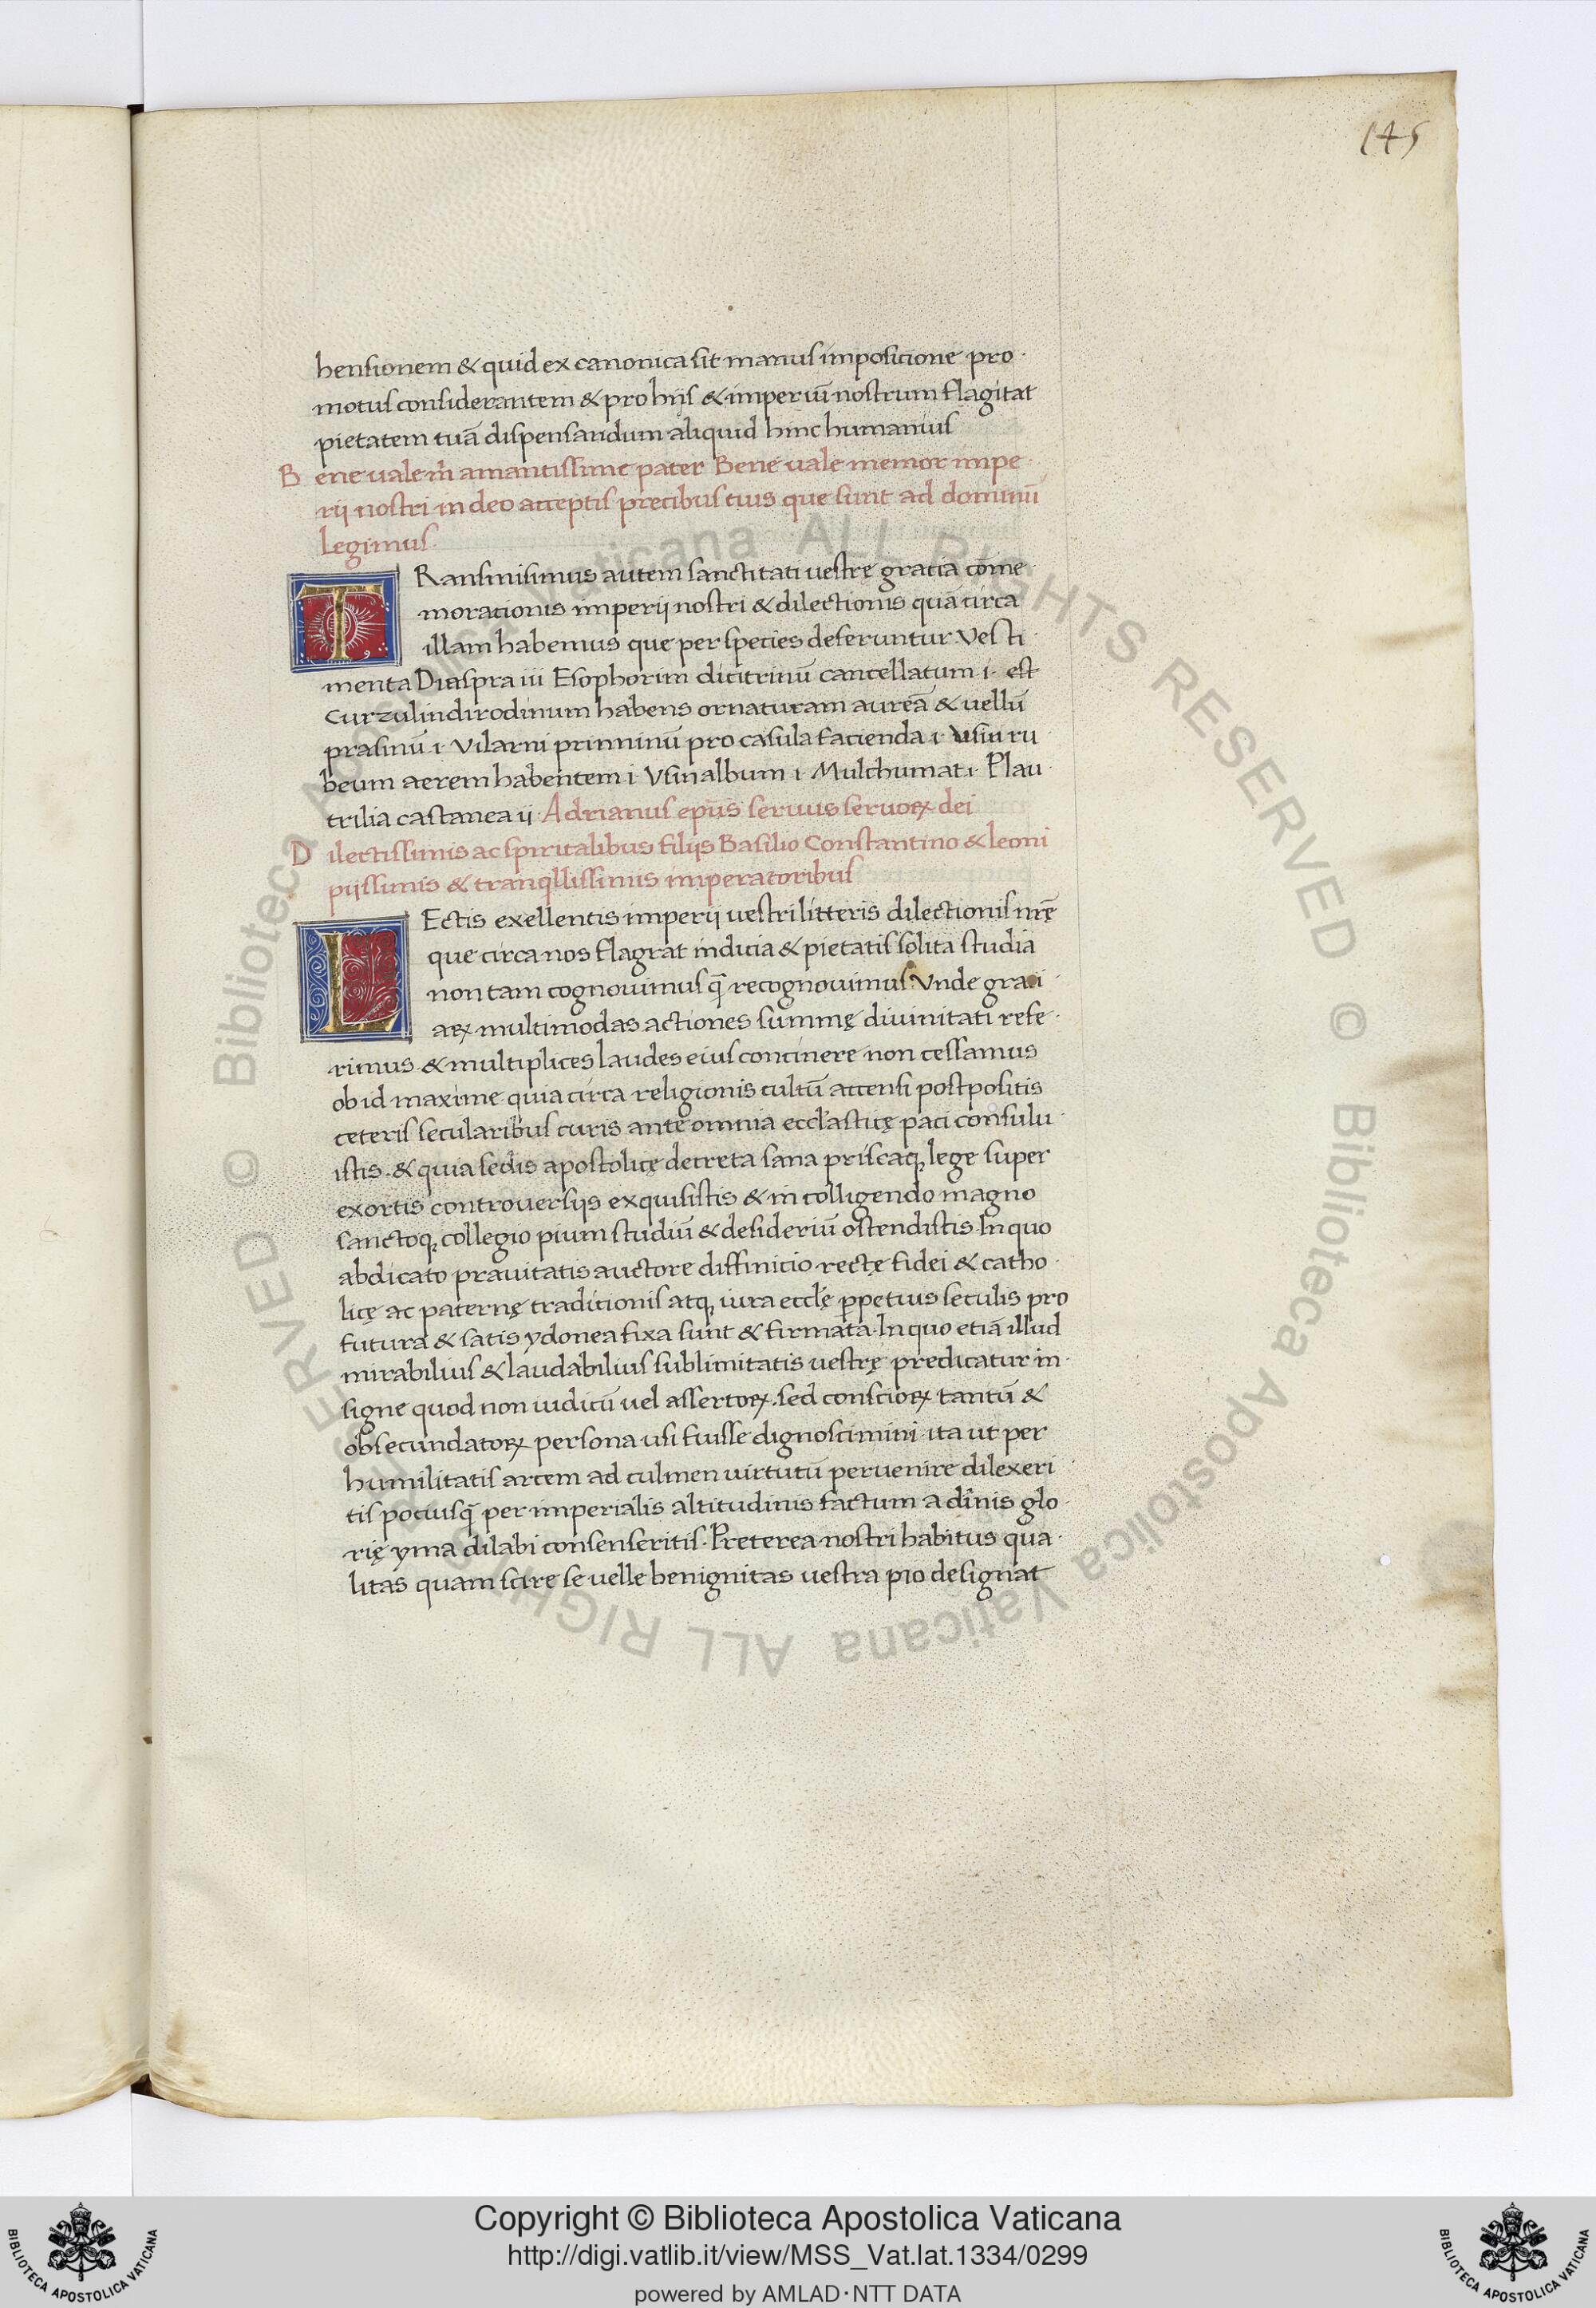 145
hensionem & quid ex canonica sit manus imposicione pro
motus considerantem & pro hijs & imperiū nostrum flagitat
pietatem tuā dispensandum aliquid hinc humanius
Bene vale m̄ amantissime pater Bene vale memor impe
rij nostri in deo acceptis precibus tuis que sunt ad dominū
Legimus
TRansmisimus autem sanctitati vestrę gratia cōme
morationis imperij nostri & dilectionis quā circa
illam habemus que per species deferuntur Vesti
menta Diaspra iii Esophorim dicitrinū cancellatum i· est
curzulindirodinum habens ornaturam aureā & vellū
prasinū i· Vilarni prinninū pro casula facienda i· Usin ru
beum aerem habentem i· Vsin album i· Mulchumat i· Plau
trilia castanea ij Adrianus ep̄us servus servoꝝ dei
Dilectissimis ac spiritalibus filijs Basilio Constantino & leoni
pijssimis & tranqllissimis imperatoribus
LEctis exellentis imperij vestri litteris dilectionis nr̄ę
que circa nos flagrat indicia & pietatis solita studia
non tam cognovimus q̄ recognovimus: Vnde graci
aꝝ multimodas actiones summę divinitati refe
rimus & multiplices laudes eius continere non cessamus
ob id maxime quia circa religionis cultū accensi postpositis
ceteris secularibus curis ante omnia eccl'asticę paci consulu
istis · & quia sedis apostolicę decreta sana priscaq; lege super
exortis controversijs exquisistis & in colligendo magno
sanctoq; collegio pium studiū & desideriū ostendistis· In quo
abdicato pravitatis auctore diffinicio rectę fidei & catho
licę ac paternę traditionis atq; iura eccl'ę ꝑpetuis seculis pro
futura & satis ydonea fixa sunt & firmata· In quo etiā illud
mirabilius & laudabilius sublimitatis vestrę predicatur in
signe quod non iudicū vel assertoꝝ sed consctoꝝ tantū &
obsecundatoꝝ persona usi fuisse dignoscimini ita ut per
humilitatis arcem ad culmen virtutū pervenire dilexeri
tis pociusq̄ per imperialis altitudinis factum a divinis glo
rię yma dilabi consenseritis· Preterea nostri habitus qua
litas quam scire se velle benignitas vestra pio designat
Copyright © Biblioteca Apostolica Vaticana
http://digi.vatlib.it/view/MSS_Vat.lat.1334/0299
powered by AMLAD·NTT DATA
BIBLIOTECA APOSTOLICA VATICANA
BIBLIOTECA APOSTOLICA VATICANA
© Biblioteca Apostolica Vaticana ALL RIGHTS RESERVED
© Biblioteca Apostolica Vaticana ALL RIGHTS RESERVED